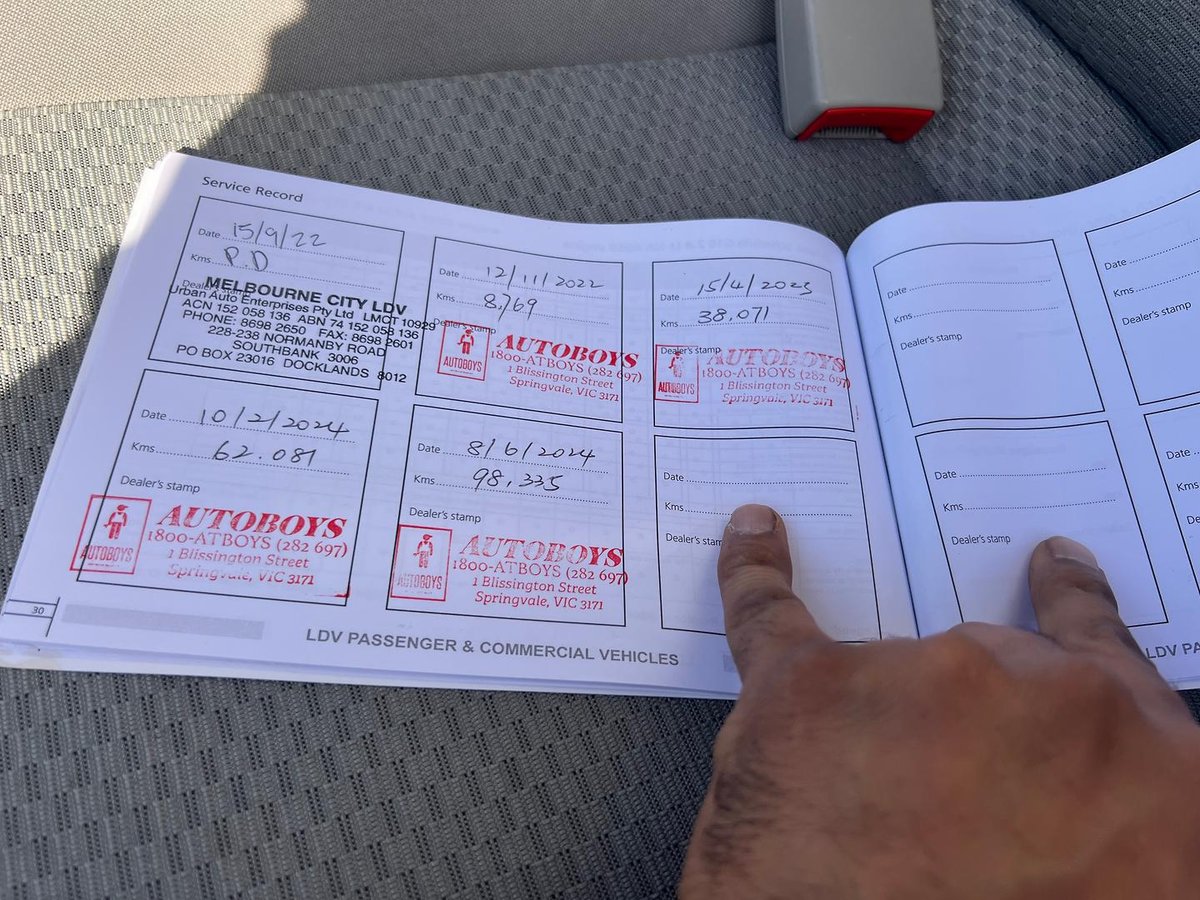 Service Record
Date 15/9/22
Kms P.D
MELBOURNE CITY LDV
Urban Auto Enterprises Pty Ltd LMCT 10929
ACN 152 058 136 ABN 74 152 058 136
PHONE: 8698 2650 FAX: 8698 2601
228-238 NORMANBY ROAD
SOUTHBANK 3006
PO BOX 23016 DOCKLANDS 8012
Date 12/11/2022
Kms 8,769
Dealer's stamp
AUTOBOYS
AUTOBOYS
1800-ATBOYS (282 697)
1 Blissington Street
Springvale, VIC 3171
Date 15/4/2023
Kms 38,071
Dealer's stamp
AUTOBOYS
AUTOBOYS
1800-ATBOYS (282 697)
1 Blissington Street
Springvale, VIC 3171
Date 10/2/2024
Kms 62.081
Dealer's stamp
AUTOBOYS
AUTOBOYS
1800-ATBOYS (282 697)
1 Blissington Street
Springvale, VIC 3171
Date 8/6/2024
Kms 98,335
Dealer's stamp
AUTOBOYS
AUTOBOYS
1800-ATBOYS (282 697)
1 Blissington Street
Springvale, VIC 3171
Date
Kms
Dealer's stam
30
LDV PASSENGER & COMMERCIAL VEHICLES
Date
Kms
Dealer's stamp
Date
Kms
Dealer's stamp
Date
Kms
Dealer's stamp
Date
Kms
Dealer's
LDV PA